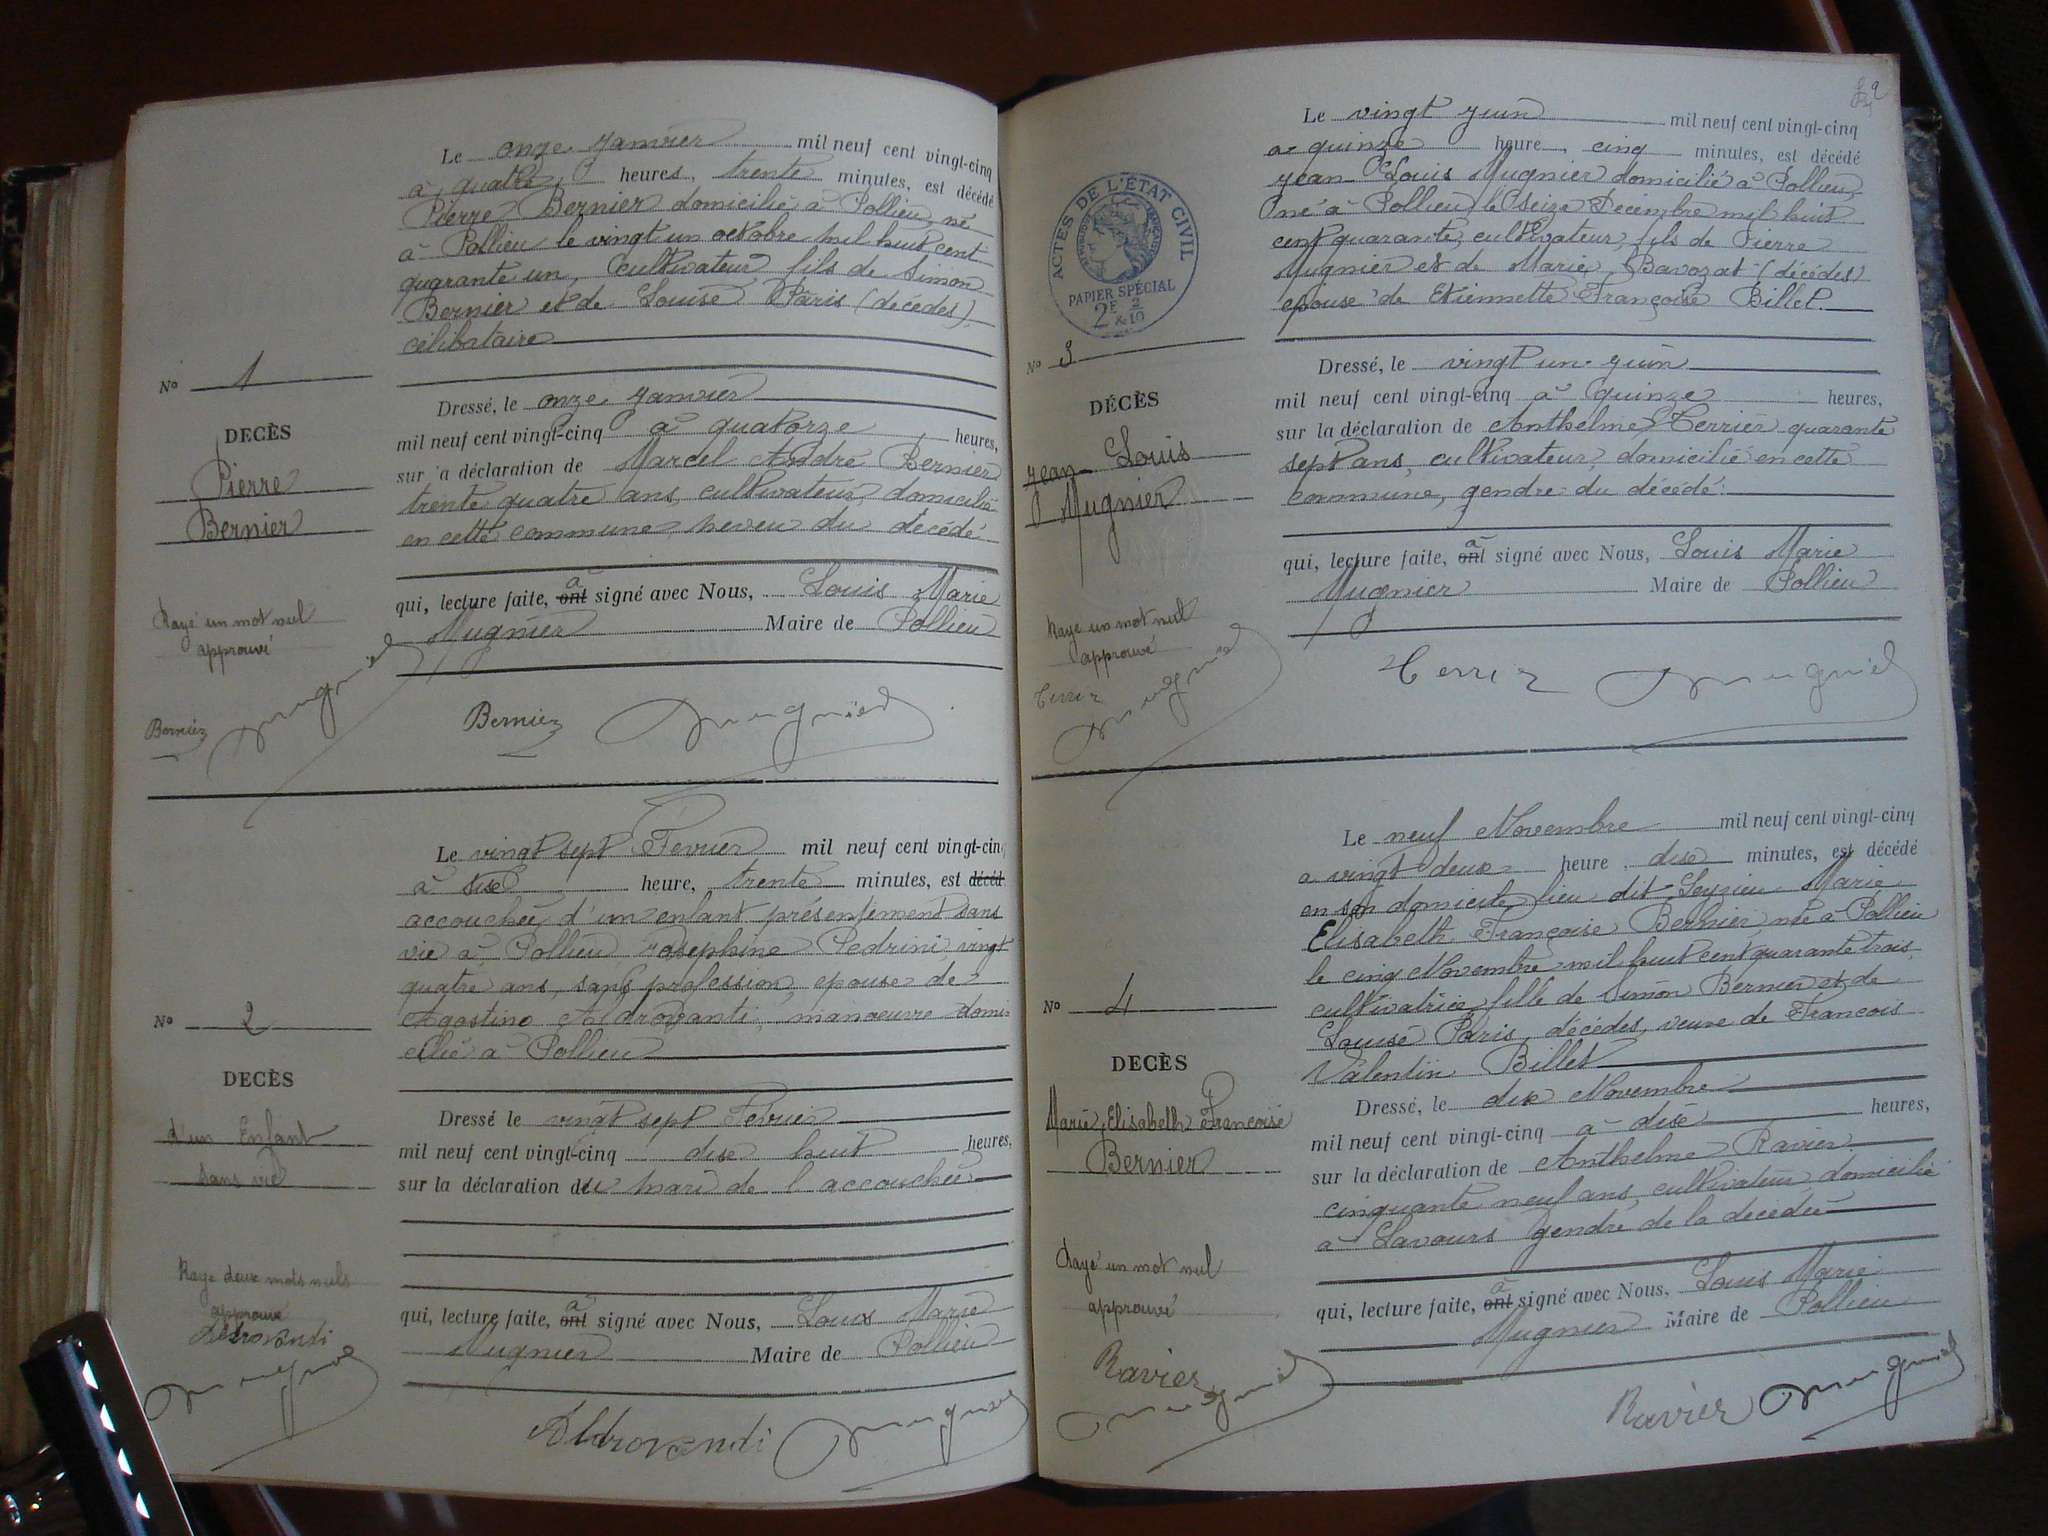 Le onze Janvier mil neuf cent vingt-cinq
à quatre heures, trente minutes, est décédé
Pierre Bernier domicilié à Pollieu né
à Pollieu le vingt un octobre mil huit cent
quarante un, cultivateur fils de Simon
Bernier et de Louise Pâris (décédés)
célibataire
No 1
DECÈS
Pierre
Bernier
Dressé, le onze Janvier
mil neuf cent vingt-cinq à quatorze heures,
sur a déclaration de Marcel André Bernier
trente quatre ans, cultivateur, domicilié
en cette commune, neveu du décédé
qui, lecture faite, ont a signé avec Nous, Louis Marie
Mugnier Maire de Pollieu
Rayé un mot nul
approuvé
Bernier
Mugnier
Bernier Mugnier
Le vingt sept Février mil neuf cent vingt-cinq
à dix heure, trente minutes, est décéd
accouchée d'un enfant présentement sans
vie à Pollieu Joséphine Pedrini, vingt
quatre ans, sans profession, épouse de
Agostino Aldrovanti, manoeuvre domi-
cilié à Pollieu
No 2
DECÈS
d'un Enfant
sans vie
Dressé le vingt sept Février
mil neuf cent vingt-cinq dix huit heures,
sur la déclaration du mari de l accouchée
Rayé deux mots nuls
approuvé
Aldrovandi
Mugnier
qui, lecture faite, ont a signé avec Nous, Louis Marie
Mugnier Maire de Pollieu
Aldrovandi Mugnier
2
Le vingt Juin mil neuf cent vingt-cinq
à quinze heure, cinq minutes, est décédé
Jean Louis Mugnier domicilié à Pollieu
né à Pollieu le seize Décembre mil huit
cent quarante, cultivateur, fils de Pierre
Mugnier et de Marie Bavozat (décédés)
epoux de Etiennette Françoise Billet.
ACTES DE L'ÉTAT CIVIL
PAPIER SPÉCIAL
2F 2/10
No 3
DÉCÈS
Jean Louis
Mugnier
Dressé, le vingt un Juin
mil neuf cent vingt-cinq à quinze heures,
sur la déclaration de Anthelme Terrier quarante
sept ans, cultivateur, domicilié en cette
commune, gendre du décédé.
qui, lecture faite, ont a signé avec Nous, Louis Marie
Mugnier Maire de Pollieu
Rayé un mot nul
approuvé
Terrier
Mugnier
Terrier Mugnier
Le neuf Novembre mil neuf cent vingt-cinq
a vingt deux heure, dix minutes, est décédé
en son domicile lieu dit Leyzieu Marie
Elisabeth Françoise Bernier, née à Pollieu
le cinq Novembre mil huit cent quarante trois,
cultivatrice, fille de Simon Bernier et de
Louise Paris, décédés, veuve de François
Valentin Billet
No 4
DECÈS
Marie, Elisabeth Françoise
Bernier
Dressé, le dix Novembre
mil neuf cent vingt-cinq à dix heures,
sur la déclaration de Anthelme Ravier
cinquante neuf ans, cultivateur, domicilié
à Lavours gendre de la décédée
Rayé un mot nul
approuvé
Ravier
Mugnier
qui, lecture faite, ont a signé avec Nous, Louis Marie
Mugnier Maire de Pollieu
Ravier Mugnier